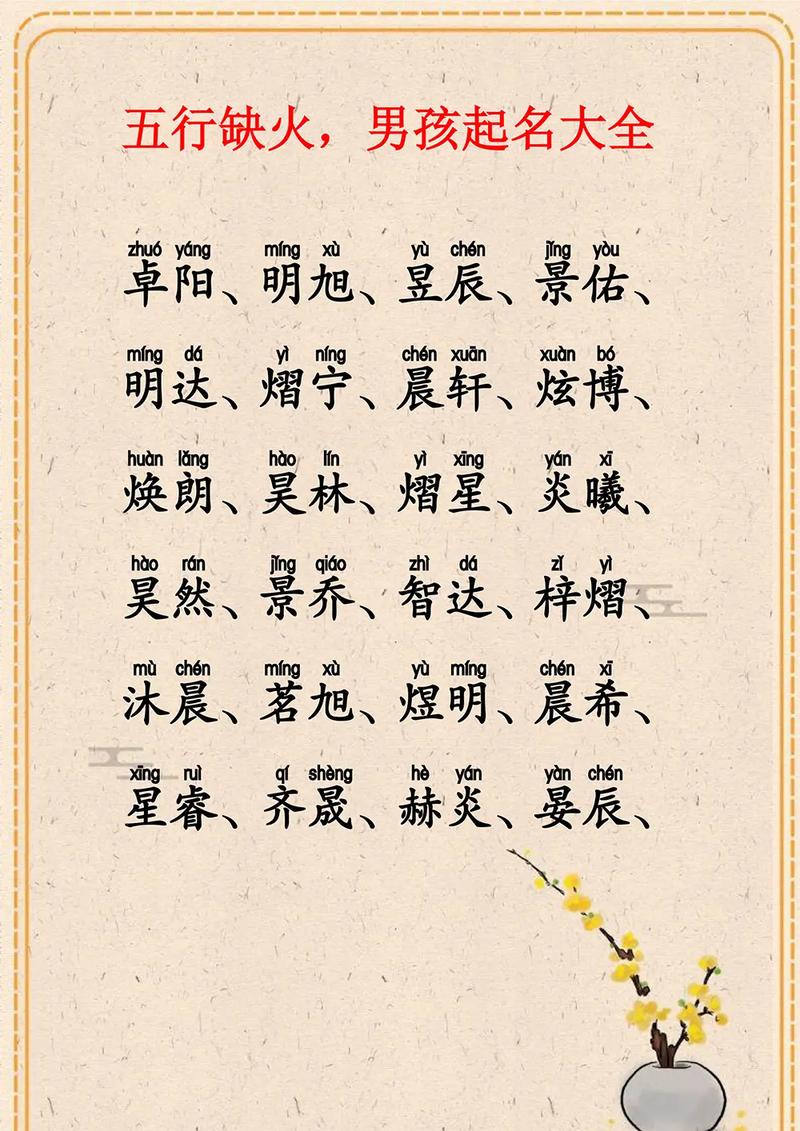 五行缺火，男孩起名大全
zhuó yáng míng xù yù chén jǐng yòu
卓阳、明旭、昱辰、景佑、
míng dá yì níng chén xuān xuàn bó
明达、熠宁、晨轩、炫博、
huàn lǎng hào lín yì xīng yán xī
焕朗、昊林、熠星、炎曦、
hào rán jǐng qiáo zhì dá zǐ yì
昊然、景乔、智达、梓熠、
mù chén míng xù yù míng chén xī
沐晨、茗旭、煜明、晨希、
xīng ruì qí shèng hè yán yàn chén
星睿、齐晟、赫炎、晏辰、